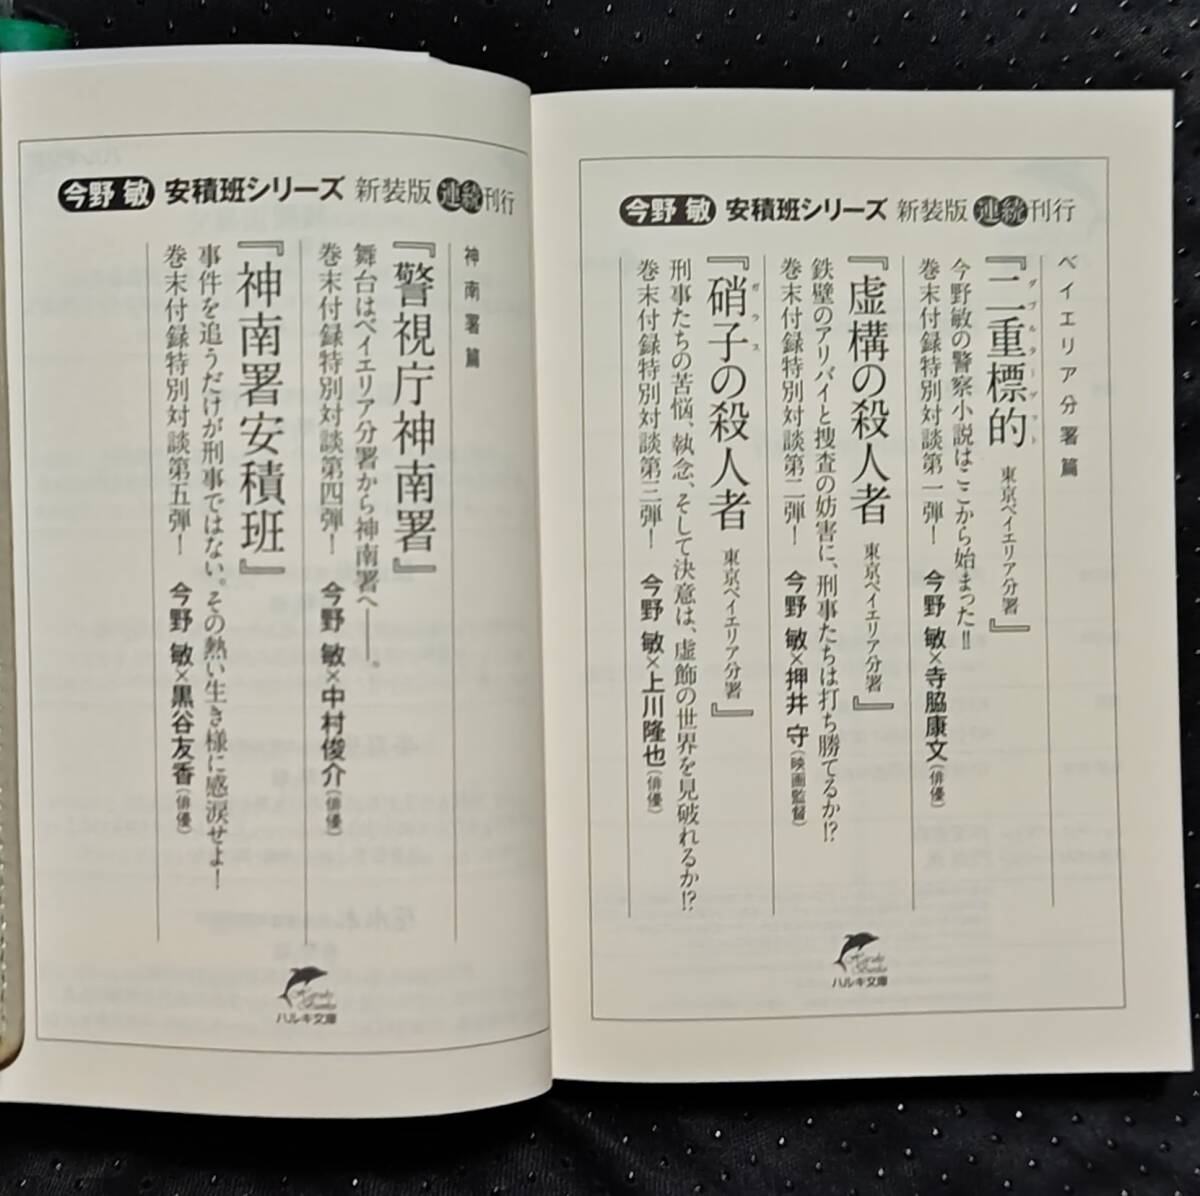 今野 敏 安積班シリーズ 新装版 連続刊行
ベイエリア分署篇
『二重標的 東京ベイエリア分署』
ダブルターゲット
今野敏の警察小説はここから始まった!!
巻末付録特別対談第一弾！ 今野 敏×寺脇康文(俳優)
『虚構の殺人者 東京ベイエリア分署』
鉄壁のアリバイと捜査の妨害に、刑事たちは打ち勝てるか!?
巻末付録特別対談第二弾！ 今野 敏×押井 守(映画監督)
『硝子の殺人者 東京ベイエリア分署』
ガラス
刑事たちの苦悩、執念、そして決意は、虚飾の世界を見破れるか!?
巻末付録特別対談第三弾！ 今野 敏×上川隆也(俳優)
Haruki Bunko
ハルキ文庫
今野 敏 安積班シリーズ 新装版 連続刊行
神南署篇
『警視庁神南署』
舞台はベイエリア分署から神南署へ――。
巻末付録特別対談第四弾！ 今野 敏×中村俊介(俳優)
『神南署安積班』
事件を追うだけが刑事ではない。その熱い生き様に感涙せよ！
巻末付録特別対談第五弾！ 今野 敏×黒谷友香(俳優)
Haruki Bunko
ハルキ文庫